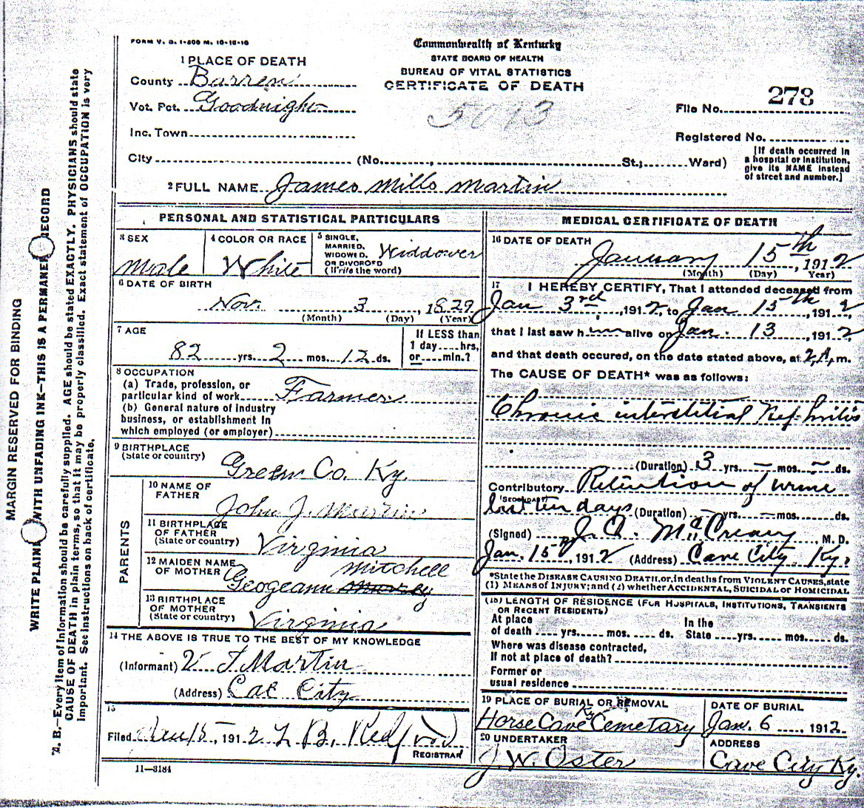 FORM V. S. 1-500 M. 10-10-10
Commonwealth of Kentucky
STATE BOARD OF HEALTH
BUREAU OF VITAL STATISTICS
CERTIFICATE OF DEATH
1 PLACE OF DEATH
County Barren
Vot. Pct. Goodnight
Inc. Town
City (No. , St.; Ward)
5013
File No. 278
Registered No.
[If death occurred in
a hospital or institution,
give its NAME instead
of street and number.]
2 FULL NAME James Mills Martin
PERSONAL AND STATISTICAL PARTICULARS
3 SEX
Male
4 COLOR OR RACE
White
5 SINGLE,
MARRIED,
WIDOWED,
OR DIVORCED
(Write the word)
Widdower
6 DATE OF BIRTH
Nov. 3, 1829
(Month) (Day) (Year)
7 AGE
82 yrs. 2 mos. 12 ds.
If LESS than
1 day hrs,
or min.?
8 OCCUPATION
(a) Trade, profession, or
particular kind of work Farmer
(b) General nature of industry
business, or establishment in
which employed (or employer)
9 BIRTHPLACE
(State or country)
Green Co. Ky.
PARENTS
10 NAME OF
FATHER
John J. Martin
11 BIRTHPLACE
OF FATHER
(State or country)
Virginia
12 MAIDEN NAME
OF MOTHER
Geogeann Mitchell
13 BIRTHPLACE
OF MOTHER
(State or country)
Virginia
14 THE ABOVE IS TRUE TO THE BEST OF MY KNOWLEDGE
(Informant) V. T. Martin
(Address) Cae City
15
Filed Jan 15, 1912 L. B. Redford
REGISTRAR
11-3184
MEDICAL CERTIFICATE OF DEATH
16 DATE OF DEATH
January 15th, 1912
(Month) (Day) Year)
17 I HEREBY CERTIFY, That I attended deceased from
Jan 3rd, 1912, to Jan 15th, 191 2
that I last saw him alive on Jan. 13, 1912
and that death occured, on the date stated above, at 2 A. m.
The CAUSE OF DEATH* was as follows:
Chronic interstitial Nephritis
(Duration) 3 yrs. – mos. – ds.
Contributory Retention of urine
(SECONDARY)
last ten days (Duration) yrs. mos. ds.
(Signed) J. Q. McCreary M. D.
Jan. 15, 1912 (Address) Cave City Ky.
*State the DISEASE CAUSING DEATH, or, in deaths from VIOLENT CAUSES, state
(1) MEANS OF INJURY; and (2) whether ACCIDENTAL, SUICIDAL or HOMICIDAL
(18) LENGTH OF RESIDENCE (FOR HOSPITALS, INSTITUTIONS, TRANSIENTS
OR RECENT RESIDENTS)
At place In the
of death yrs. mos. ds. State yrs. mos. ds.
Where was disease contracted,
If not at place of death?
Former or
usual residence
19 PLACE OF BURIAL OR REMOVAL
Horse Cave Cemetary
DATE OF BURIAL
Jan. 6, 1912
20 UNDERTAKER
J W. Oster
ADDRESS
Cave City Ky.
MARGIN RESERVED FOR BINDING
WRITE PLAIN WITH UNFADING INK—THIS IS A PERMANE RECORD
N. B.—Every item of information should be carefully supplied. AGE should be stated EXACTLY. PHYSICIANS should state
CAUSE OF DEATH in plain terms, so that it may be properly classified. Exact statement of OCCUPATION is very
important. See instructions on back of certificate.